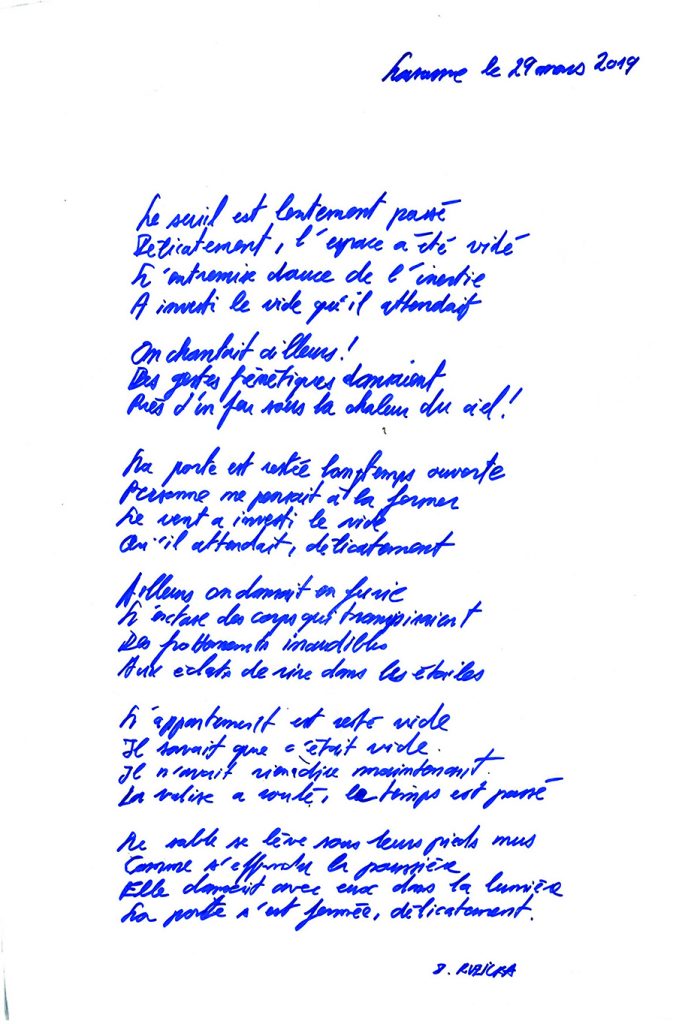 Lausanne le 29 mars 2019
Le seuil est lentement passé
Délicatement, l'espace a été vidé
L'entremise douce de l'inertie
A investi le vide qu'il attendait
On chantait ailleurs!
Des gestes frénétiques dansaient
Près d'un feu sous la chaleur du ciel!
La porte est restée longtemps ouverte
Personne ne pensait à la fermer
Le vent a investi le vide
Qu'il attendait, délicatement
Ailleurs on dansait en furie
L'extase des corps qui transpiraient
Des frottements inaudibles
Aux éclats de rire dans les étoiles
L'appartement est resté vide
Il savait que c'était vide.
Il n'avait rien à dire maintenant.
La valise a roulé, le temps est passé
Le sable se lève sous leurs pieds nus
Comme s'effondre la poussière
Elle dansait avec eux dans la lumière
La porte s'est fermée, délicatement.
D. RUZICKA